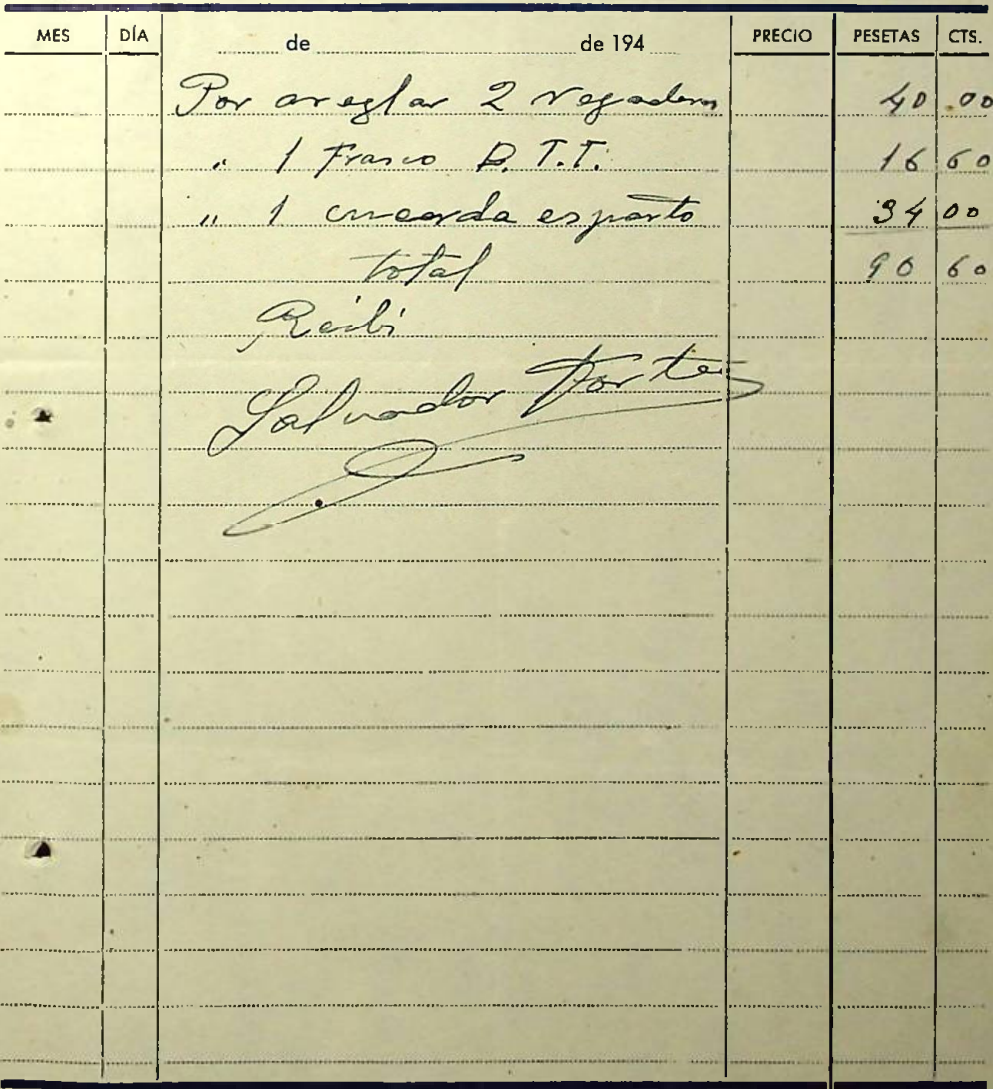 MES DÍA de de 194 PRECIO PESETAS CTS.
Por areglar 2 regaderas 40 00
" 1 Frasco D.T.T. 16 60
" 1 cucarda esparto 34 00
total 90 60
Recibi
Salvador Fortes